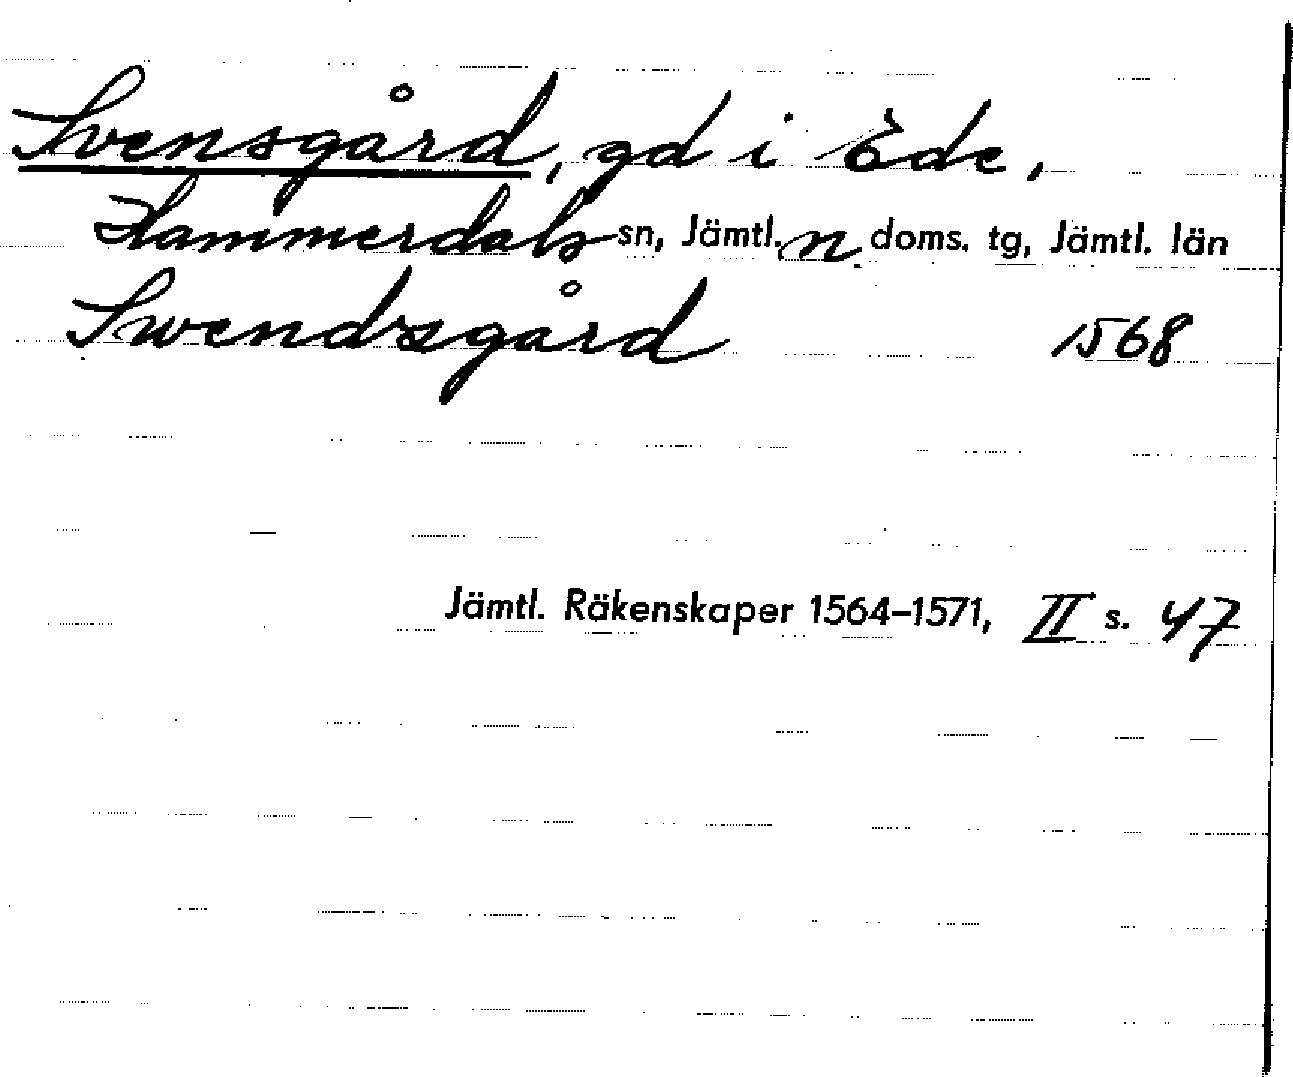 Svensgård, gd i Ede,
Hammerdals sn, Jämtl. n. doms. tg, Jämtl. län
Swendsgård 1568
Jämtl. Räkenskaper 1564-1571, II s. 47